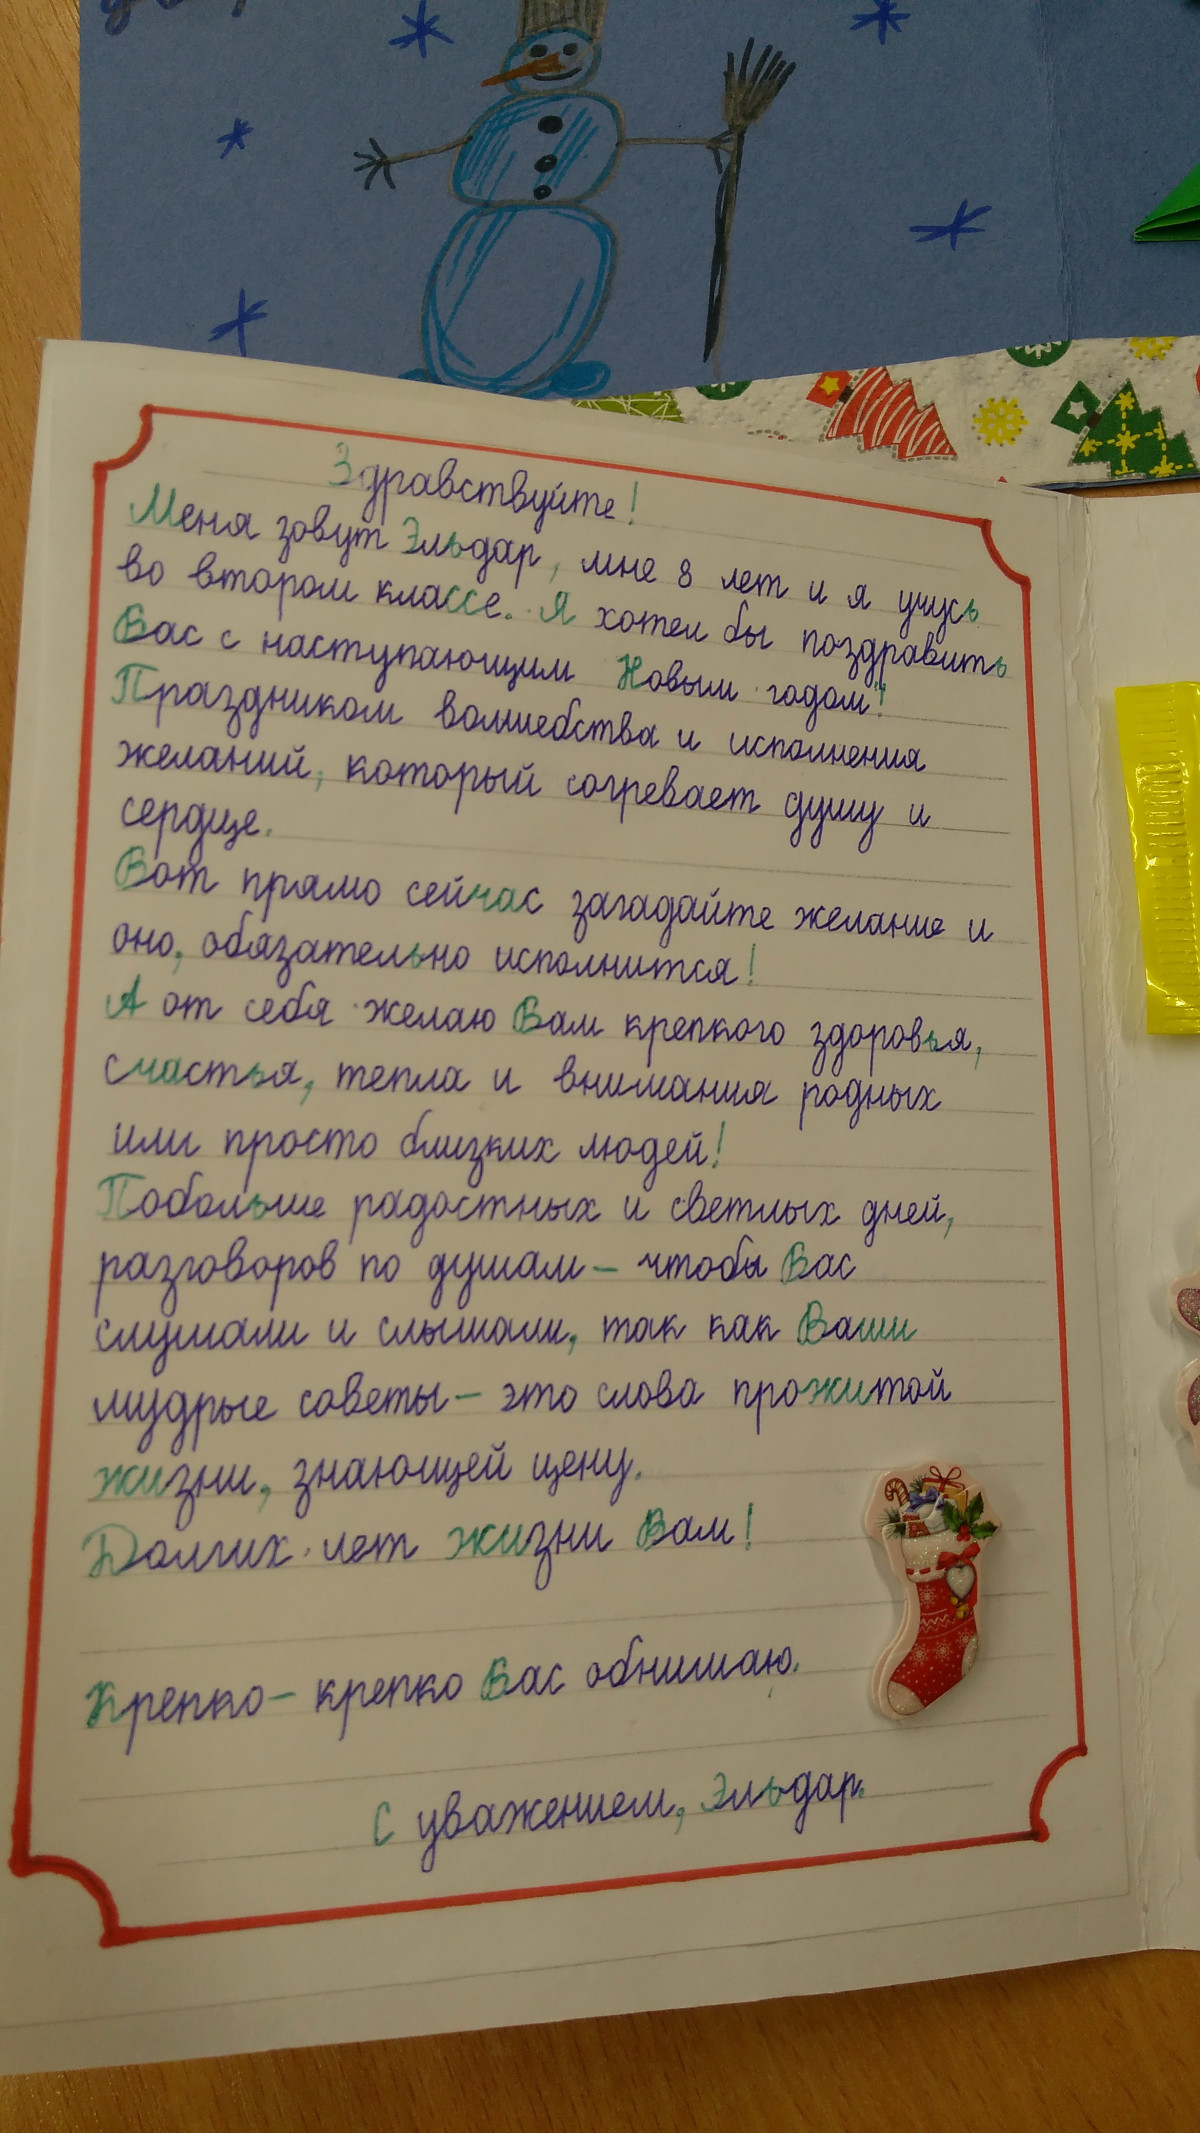 Здравствуйте!
Меня зовут Эльдар, мне 8 лет и я учусь
во втором классе. Я хотел бы поздравить
Вас с наступающим Новым годом!
Праздником волшебства и исполнения
желаний, который согревает душу и
сердце.
Вот прямо сейчас загадайте желание и
оно, обязательно исполнится!
А от себя желаю Вам крепкого здоровья,
счастья, тепла и внимания родных
или просто близких людей!
Побольше радостных и светлых дней,
разговоров по душам - чтобы Вас
слушали и слышали, так как Ваши
мудрые советы - это слова прожитой
жизни, знающей цену.
Долгих лет жизни Вам!
Крепко - крепко Вас обнимаю.
С уважением, Эльдар.